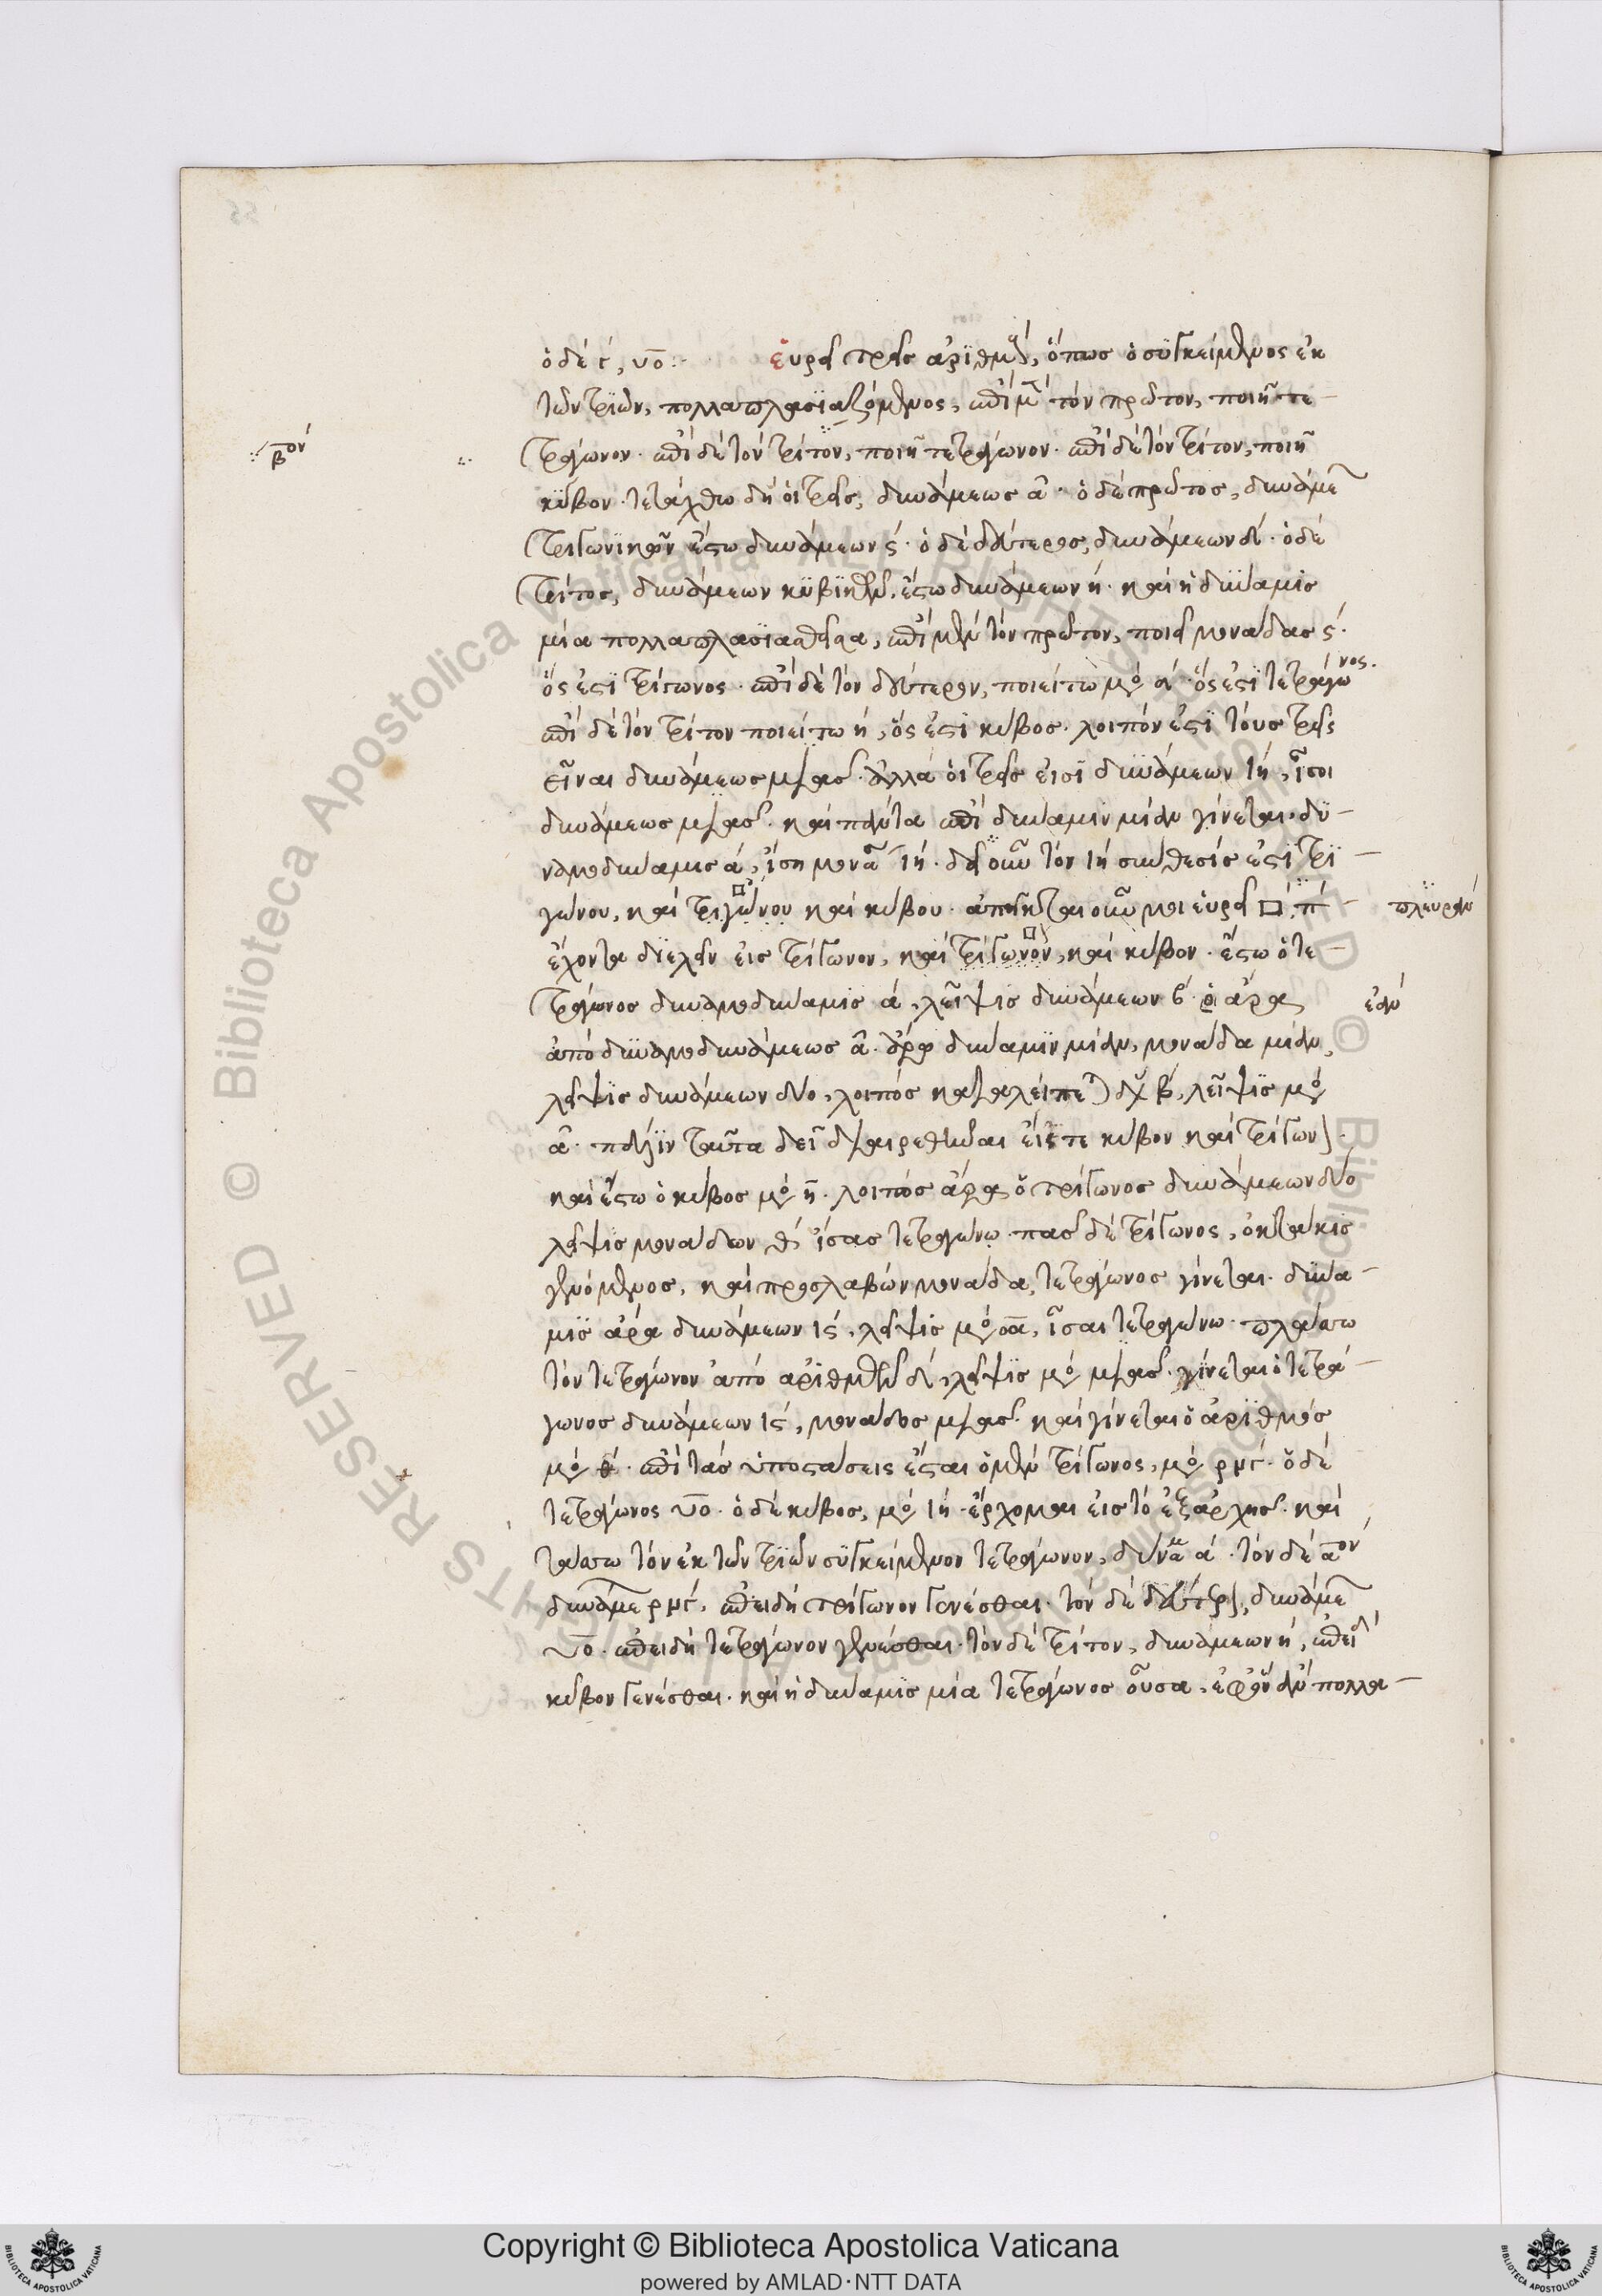 ὁ δὲ ϛ, υο:· εὑρεῖν τρεῖς ἀριθμούς, ὅπως ὁ συγκείμενος ἐκ
τῶν τριῶν, πολλαπλασιαζόμενος, ἐπὶ μὲν τὸν πρῶτον, ποιῇ τε-
τράγωνον. ἐπὶ δὲ τὸν τρίτον, ποιῇ τετράγωνον. ἐπὶ δὲ τὸν τρίτον, ποιῇ
βον
κύβον. τετάχθω δὴ οἱ τρεῖς, δυνάμεως α. ὁ δὲ πρῶτος, δυνάμε
τριγωνικῶν ἔστω δυνάμεων ϛ. ὁ δὲ δεύτερος, δυνάμεων δ. ὁ δὲ
τρίτος, δυνάμεων κυβικῶν, ἔστω δυνάμεων η. καὶ ἡ δύναμις
μία πολλαπλασιασθεῖσα, ἐπὶ μὲν τὸν πρῶτον, ποιεῖ μονάδας ϛ.
ὅς ἐστι τρίγωνος. ἐπὶ δὲ τὸν δεύτερον, ποιείτω μο δ. ὅς ἐστι τετράγωνος.
ἐπὶ δὲ τὸν τρίτον ποιείτω η, ὅς ἐστι κύβος. λοιπόν ἐστι τοὺς τρεῖς
εἶναι δυνάμεως μιᾶς. ἀλλὰ οἱ τρεῖς εἰσὶ δυνάμεων ιη, ἴσοι
δυνάμεως μιᾶς. καὶ πάντα ἐπὶ δύναμιν μίαν γίνεται. δυ-
ναμοδύναμις α, ἴση μονα ιη. δεῖ οὖν τὸν ιη σύνθεσίς ἐστι τρι-
γώνου, καὶ τριγώνου καὶ κύβου. οὖν μοι εὑρεῖν □, π- πλευρὰν
ἔχοντα διελεῖν εἰς τρίγωνον, καὶ τρίγωνον, καὶ κύβον. ἔστω ὁ τε-
τράγωνος δυναμοδύναμις α, λεῖψις δυνάμεων β ἄρα ἐὰν
ἀπὸ δυναμοδυνάμεως α. ἄρω δύναμιν μίαν, μονάδα μίαν,
λεῖψις δυνάμεων δύο, λοιπὸς καταλείπε β, λεῖψις μο
α. πάλιν ταῦτα δεῖ διαιρεθῆναι εἴς τε κύβον καὶ τρίγων.
καὶ ἔστω ὁ κύβος μο η. λοιπὸς ἄρα ὁ τρίγωνος δυνάμεων δύο
λεῖψις μονάδων θ, ἴσας τετραγώνῳ. πᾶς δὲ τρίγωνος, ὀκτάκις
γενόμενος, καὶ προσλαβὼν μονάδα, τετράγωνος γίνεται. δύνα-
μις ἄρα δυνάμεων ιϛ, λεῖψις μο οα, ἴσαι τετραγώνῳ. πλάσσω
τὸν τετράγωνον ἀπὸ ἀριθμῶν δ, λεῖψις μο μιᾶς. γίνεται ὁ τετρά-
γωνος δυνάμεων ιϛ, μονάδος μιᾶς. καὶ γίνεται ὁ ἀριθμὸς
μο θ. ἐπὶ τὰς ὑποστάσεις ἔσται ὁ μὲν τρίγωνος, μο ρμϛ. ὁ δὲ
τετράγωνος υο. ὁ δὲ κύβος, μο ιη. ἔρχομαι εἰς τὸ ἐξ ἀρχῆς. καὶ
τάσσω τὸν ἐκ τῶν τριῶν συγκείμενον τετράγωνον, δυνα α. τὸν δὲ αον
δυνάμε ρμϛ. ἐπειδὴ τρίγωνον γενέσθαι. τὸν δὲ δεύτερ, δυνάμε
υο. ἐπειδὴ τετράγωνον γενέσθαι. τὸν δὲ τρίτον, δυνάμεων η, ἐπειδ
κύβον γενέσθαι. καὶ ἡ δύναμις μία τετράγωνος οὖσα, ἐφ' ὃν ἂν πολλα-